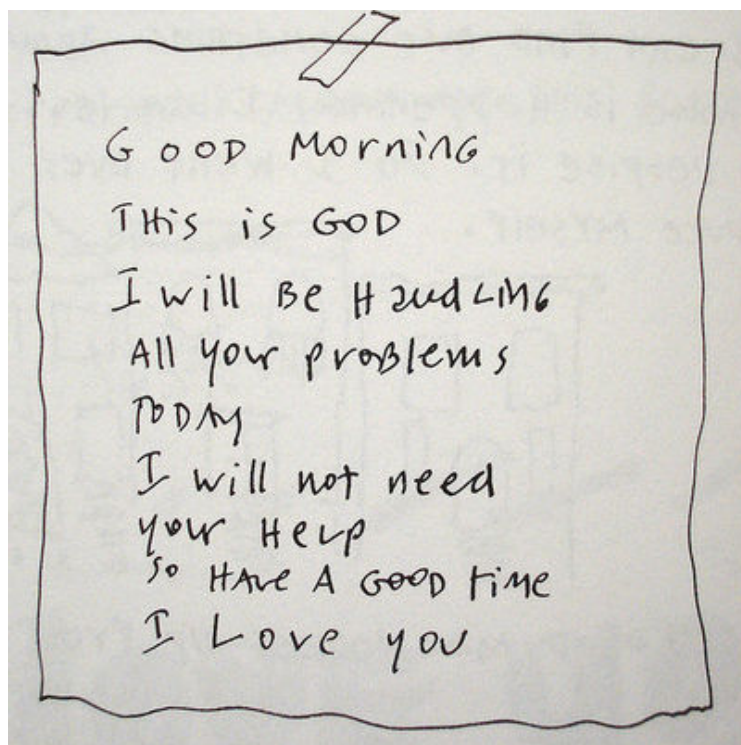 GOOD MorninG
THis is GOD
I will Be HandLING
All your proBlems
TODAY
I will not need
your HeLp
so HAve A GOOD time
I Love you